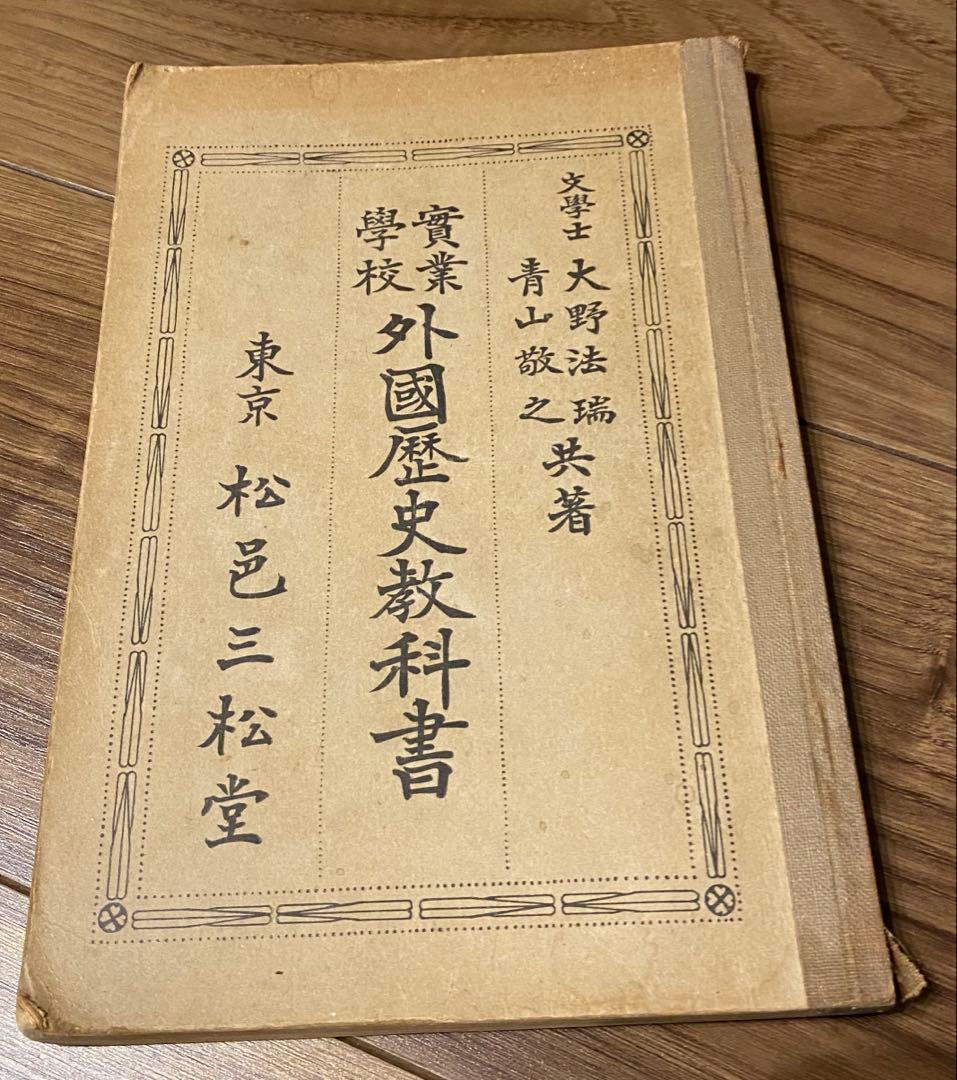 文學士 大野法瑞
青山敬之
共著
實業
學校
外國歷史教科書
東京 松邑三松堂